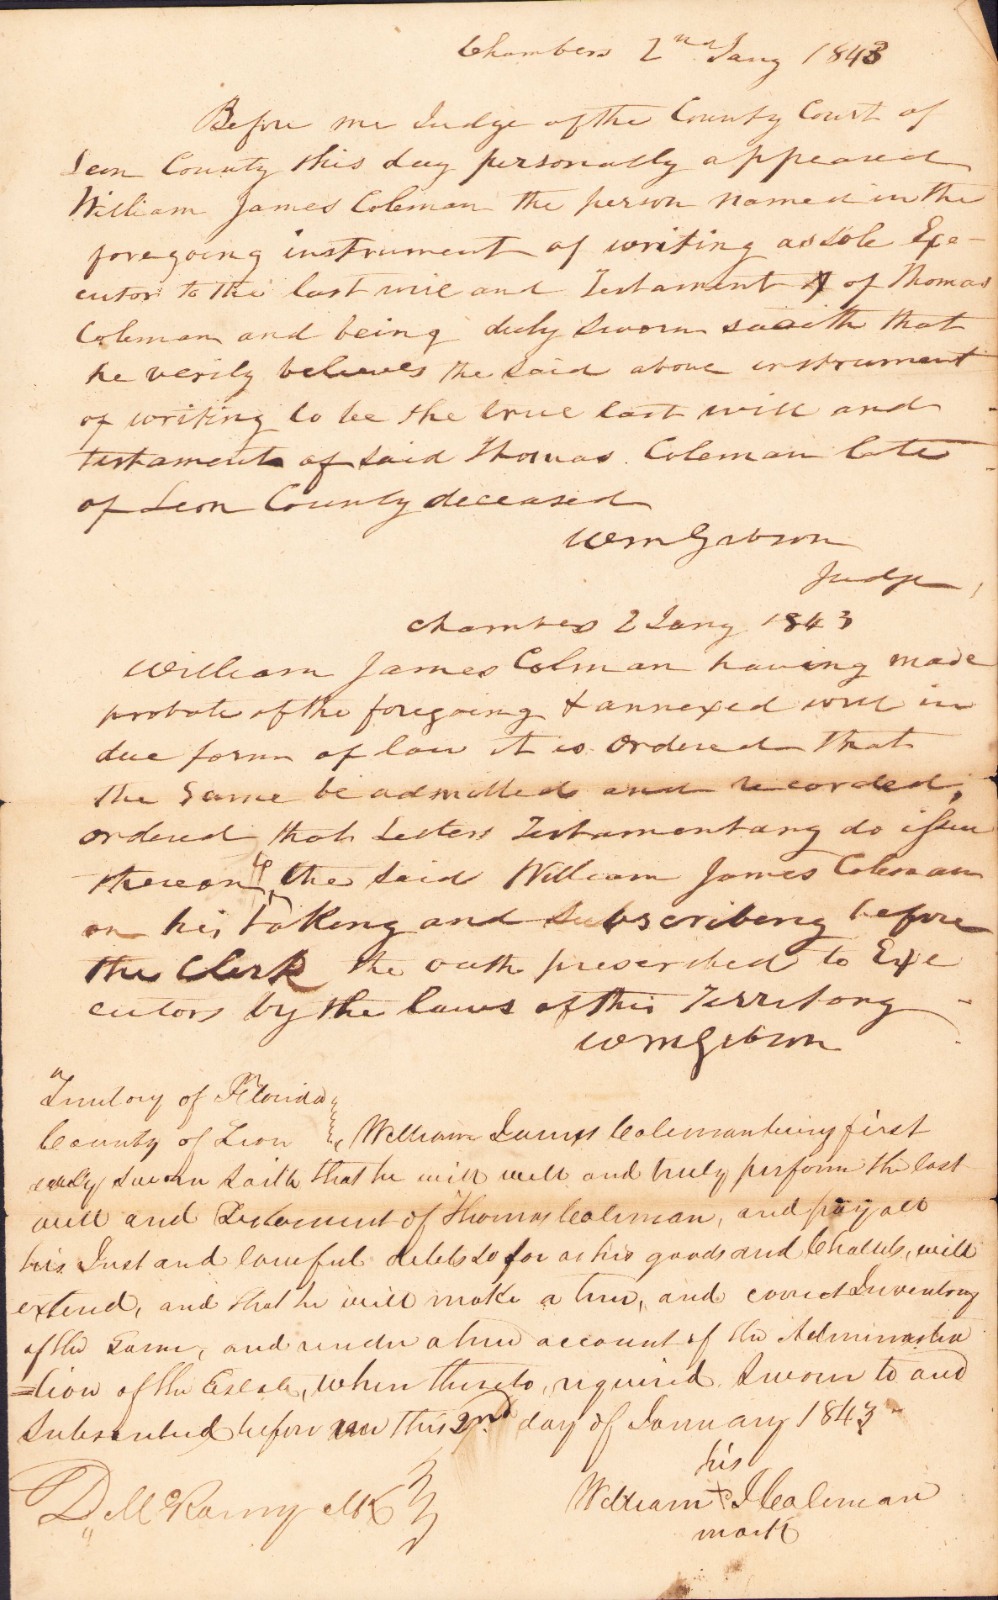 Chambers 2nd Jany 1843
Before me Judge of the County Court of
Leon County this day personally appeared
William James Coleman the person named in the
foregoing instrument of writing as sole Exe-
cutor to the last will and Testament of Thomas
Coleman and being duly sworn saieth that
he verily believes the said above instrument
of writing to be the true last will and
testament of said Thomas Coleman late
of Leon County deceased
Wm Gibson
Judge
Chambers 2 Jany 1843
William James Colman having made
probate of the foregoing & annexed will in
due form of law it is ordered that
the same be admitted and recorded,
ordered that Letters Testamentary do issue
thereon to the said William James Coleman
on his taking and subscribing before
the Clerk the oath prescribed to Exe
cutors by the laws of this Territory
Wm Gibson
Territory of Florida
County of Leon William James Coleman being first
duly sworn saith that he will well and truly perform the last
will and Testament of Thomas Coleman, and pay all
his Just and lawful debts so far as his goods and Chattels, will
extend, and that he will make a true, and correct Inventory
of the same, and render a true account of the Administra
=tion of the Estate, when thereto, required. Sworn to and
Subscribed before me this 2nd day of January 1843-
his
D McRaeny Clk William + J Coleman
mark